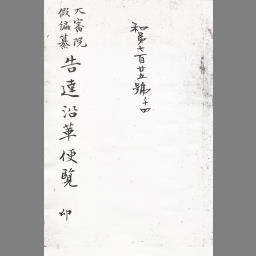 和第七百廿五號ノ十四
大審院
假編纂
告達沿革便覽
卯